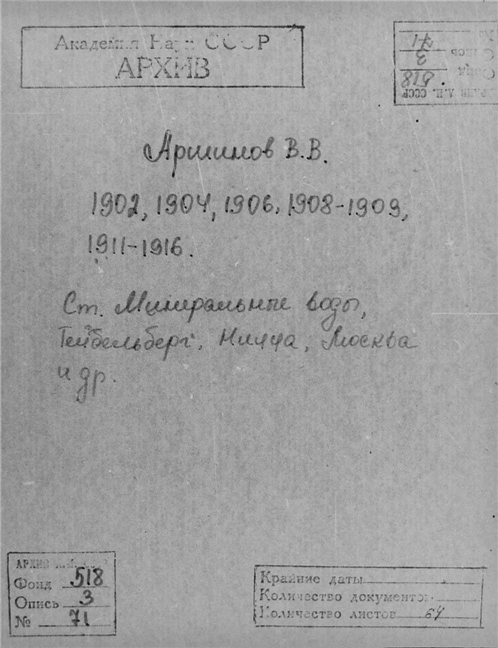 Академия Наук СССР
АРХИВ
71
3
518
Аршинов В.В.
1902, 1904, 1906, 1908-1909,
1911-1916.
Ст. Минеральные воды,
Гейдельберг, Ницца, Москва
и др.
АРХИВ
Фонд 518
Опись 3
№ 71
Крайние даты
Количество документов
Количество листов 64